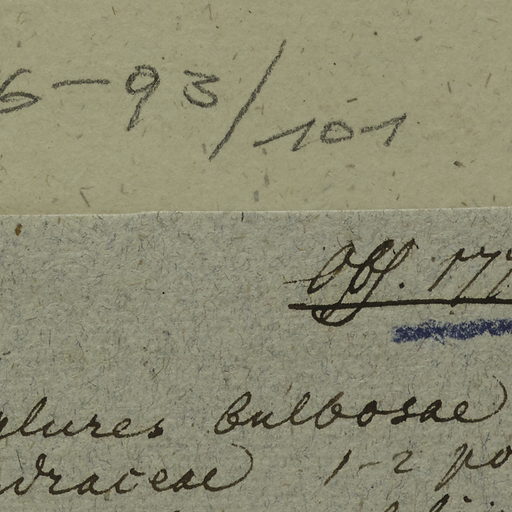 6-93/101
Off. 177
bulbosae
draceae 1-2 po